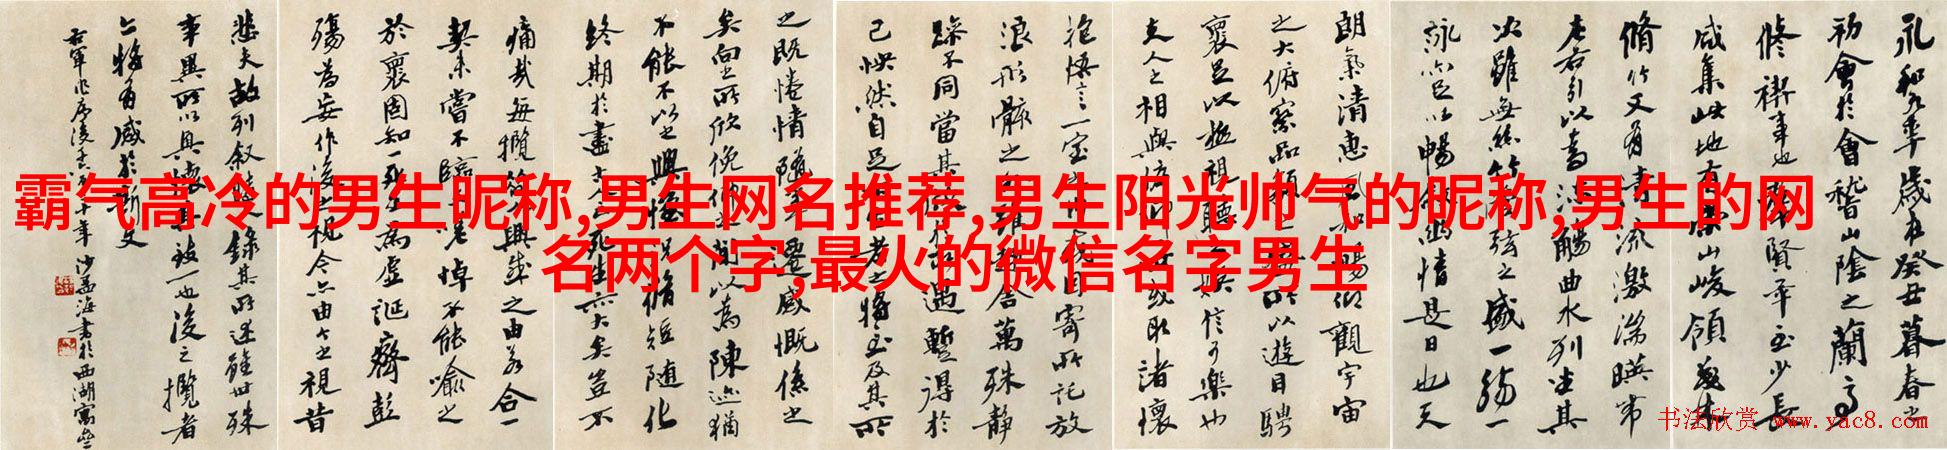 霸气高冷的男生昵称,男生网名推荐,男生阳光帅气的昵称,男生的网
名两个字,最火的微信名字男生
永和九年歲在癸丑暮春之
初會於會稽山陰之蘭亭
修禊事也群賢畢至少長
咸集此地有崇山峻領茂林
脩竹又有清流激湍暎帶
左右引以為流觴曲水列坐其
次雖無絲竹管弦之盛一觴一
詠亦足以暢敘幽情是日也天
朗氣清惠風和暢仰觀宇宙
之大俯察品類之盛所以遊目騁
襄足以極視聽之娛信可樂也
夫人之相與俯仰一世或取諸懷
抱悟言一室之內或因寄所託放
浪形骸之外雖趣舍萬殊靜
躁不同當其欣於所遇暫得於
己怏然自足不知老之將至及其所
之既惓情隨事遷感慨係之
矣向之所欣俛仰之間以為陳迹猶
不能不以之興懷況脩短隨化
終期於盡古人云死生亦大矣豈不
痛哉每攬昔人興感之由若合一
契未嘗不臨文嗟悼不能喻之
於襄固知一死生為虛誕齊彭
殤為妄作後之視今亦由今之視昔
悲夫故列敘時人錄其所述雖世殊
事異所以興懷其致一也後之攬者
亦將有感於斯文
右軍作序後 十年沙孟海書於西湖寓舍
书法欣赏 www.yac8.com